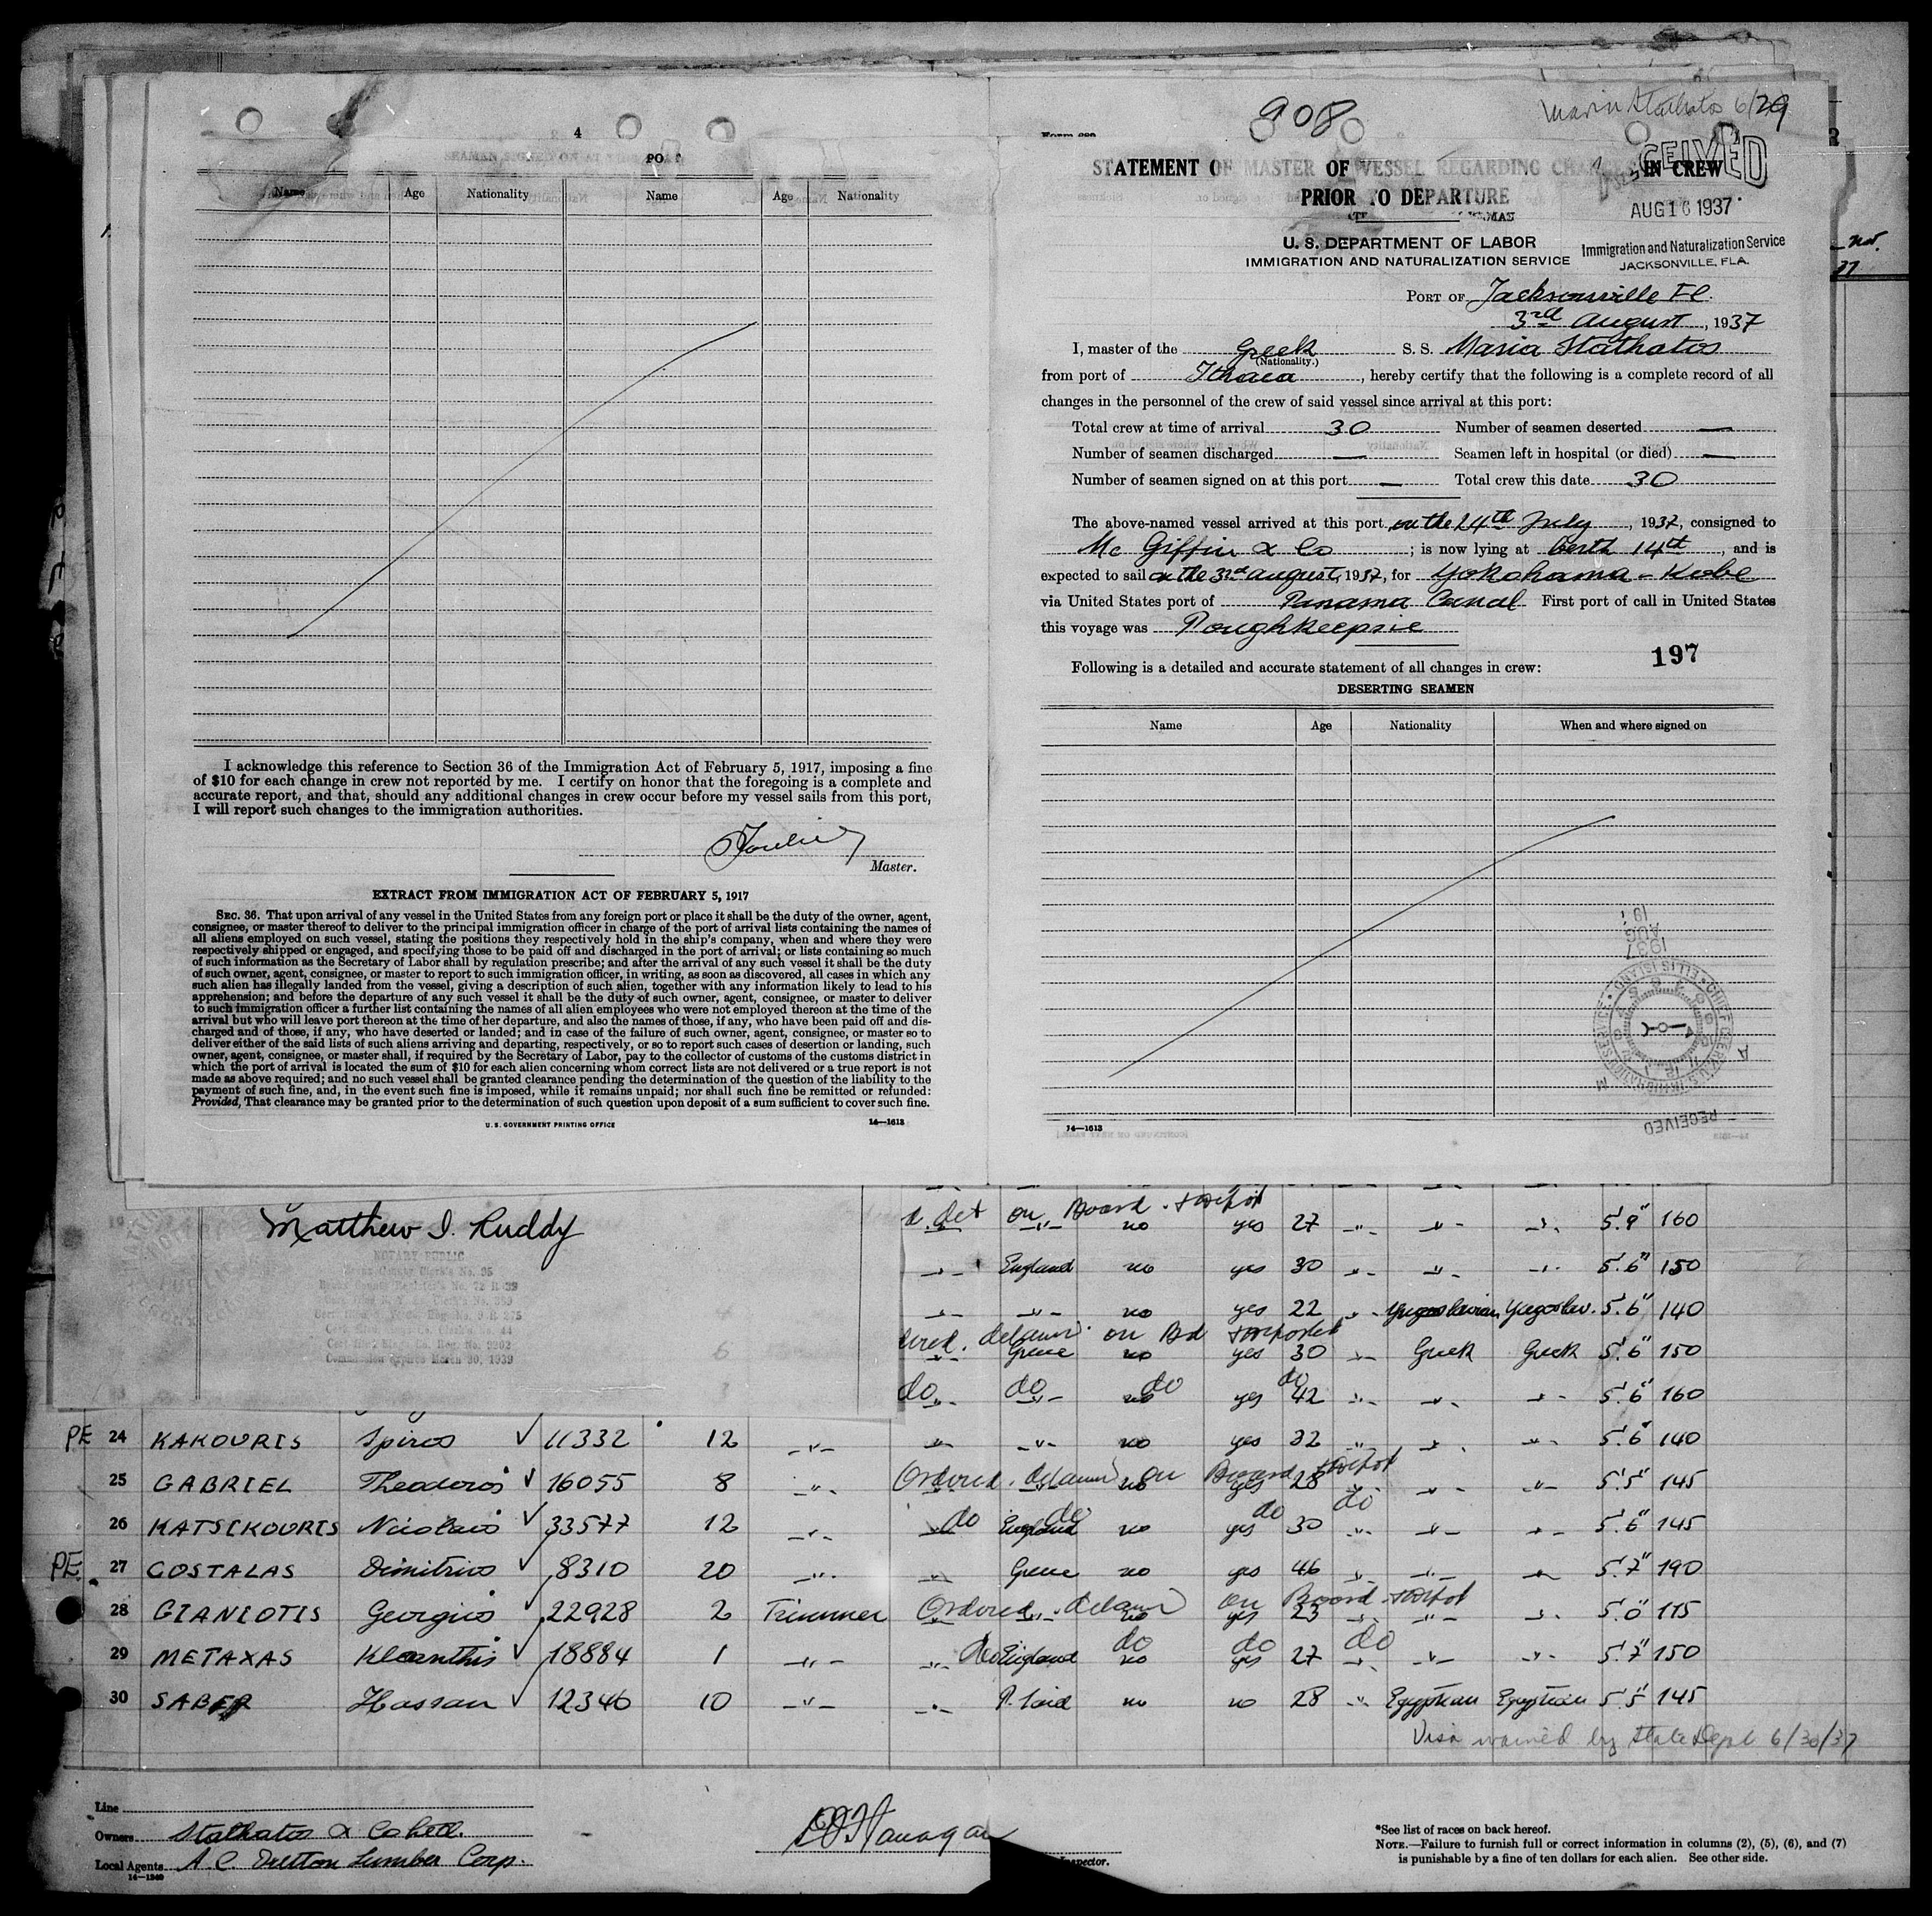 4
Name Age Nationality Name Age Nationality
I acknowledge this reference to Section 36 of the Immigration Act of February 5, 1917, imposing a fine
of $10 for each change in crew not reported by me. I certify on honor that the foregoing is a complete and
accurate report, and that, should any additional changes in crew occur before my vessel sails from this port,
I will report such changes to the immigration authorities.
Master.
EXTRACT FROM IMMIGRATION ACT OF FEBRUARY 5, 1917
SEC. 36. That upon arrival of any vessel in the United States from any foreign port or place it shall be the duty of the owner, agent,
consignee, or master thereof to deliver to the principal immigration officer in charge of the port of arrival lists containing the names of
all aliens employed on such vessel, stating the positions they respectively hold in the ship's company, when and where they were
respectively shipped or engaged, and specifying those to be paid off and discharged in the port of arrival; or lists containing so much
of such information as the Secretary of Labor shall by regulation prescribe; and after the arrival of any such vessel it shall be the duty
of such owner, agent, consignee, or master to report to such immigration officer, in writing, as soon as discovered, all cases in which any
such alien has illegally landed from the vessel, giving a description of such alien, together with any information likely to lead to his
apprehension; and before the departure of any such vessel it shall be the duty of such owner, agent, consignee, or master to deliver
to such immigration officer a further list containing the names of all alien employees who were not employed thereon at the time of the
arrival but who will leave port thereon at the time of her departure, and also the names of those, if any, who have been paid off and dis-
charged and of those, if any, who have deserted or landed; and in case of the failure of such owner, agent, consignee, or master so to
deliver either of the said lists of such aliens arriving and departing, respectively, or so to report such cases of desertion or landing, such
owner, agent, consignee, or master shall, if required by the Secretary of Labor, pay to the collector of customs of the customs district in
which the port of arrival is located the sum of $10 for each alien concerning whom correct lists are not delivered or a true report is not
made as above required; and no such vessel shall be granted clearance pending the determination of the question of the liability to the
payment of such fine, and, in the event such fine is imposed, while it remains unpaid; nor shall such fine be remitted or refunded:
Provided, That clearance may be granted prior to the determination of such question upon deposit of a sum sufficient to cover such fine.
U. S. GOVERNMENT PRINTING OFFICE 14—1613
908
Maria Stathatos 6/29
STATEMENT OF MASTER OF VESSEL REGARDING CHANGES IN CREW
PRIOR TO DEPARTURE
AUG 16 1937
U. S. DEPARTMENT OF LABOR
IMMIGRATION AND NATURALIZATION SERVICE
Immigration and Naturalization Service
JACKSONVILLE, FLA.
PORT OF Jacksonville Fl.
3rd August, 1937
I, master of the Greek S. S. Maria Stathatos
(Nationality.)
from port of Ithaca, hereby certify that the following is a complete record of all
changes in the personnel of the crew of said vessel since arrival at this port:
Total crew at time of arrival 30 Number of seamen deserted —
Number of seamen discharged — Seamen left in hospital (or died) —
Number of seamen signed on at this port — Total crew this date 30
The above-named vessel arrived at this port on the 24th July, 1937, consigned to
Mc Giffin & Co; is now lying at berth 14th, and is
expected to sail on the 3rd August, 1937, for Yokohama - Kobe
via United States port of Panama Canal First port of call in United States
this voyage was Poughkeepsie
197
Following is a detailed and accurate statement of all changes in crew:
DESERTING SEAMEN
Name Age Nationality When and where signed on
14—1613
RECEIVED
Matthew J. Ruddy
NOTARY PUBLIC
Commission expires March 30, 1939
no yes 27 5'.9" 160
England no yes 30 5'.6" 150
no yes 22 Yugoslavian Yugoslav. 5'.6" 140
Greece no yes 30 Greek Greek 5'.6" 150
do do do do
yes 42 5'.6" 160
PE 24 KAKOURIS Spiros 11332 12 no yes 32 5'.6" 140
Ordered on Board
25 GABRIEL Theodoros 16055 8 no yes 28 5'.5" 145
do do do do
26 KATSIKOURIS Nicolaos 33577 12 England no yes 30 5'.6" 145
PE 27 COSTALAS Dimitrios 8310 20 Greece no yes 46 5'.7" 190
Ordered on Board
28 GIANIOTIS Georgios 22928 2 Trimmer no yes 23 5'.0" 115
do do do do
29 METAXAS Kleanthis 18884 1 England no yes 27 5'.7" 150
30 SABER Hassan 12346 10 P. Said no no 28 Egyptian Egyptian 5'.5" 145
Visa waived by State Dept 6/30/37
Line
Owners Stathatos & Co Ltd.
Local Agents A. C. Dutton Lumber Corp.
Inspector.
*See list of races on back hereof.
NOTE.—Failure to furnish full or correct information in columns (2), (5), (6), and (7)
is punishable by a fine of ten dollars for each alien. See other side.